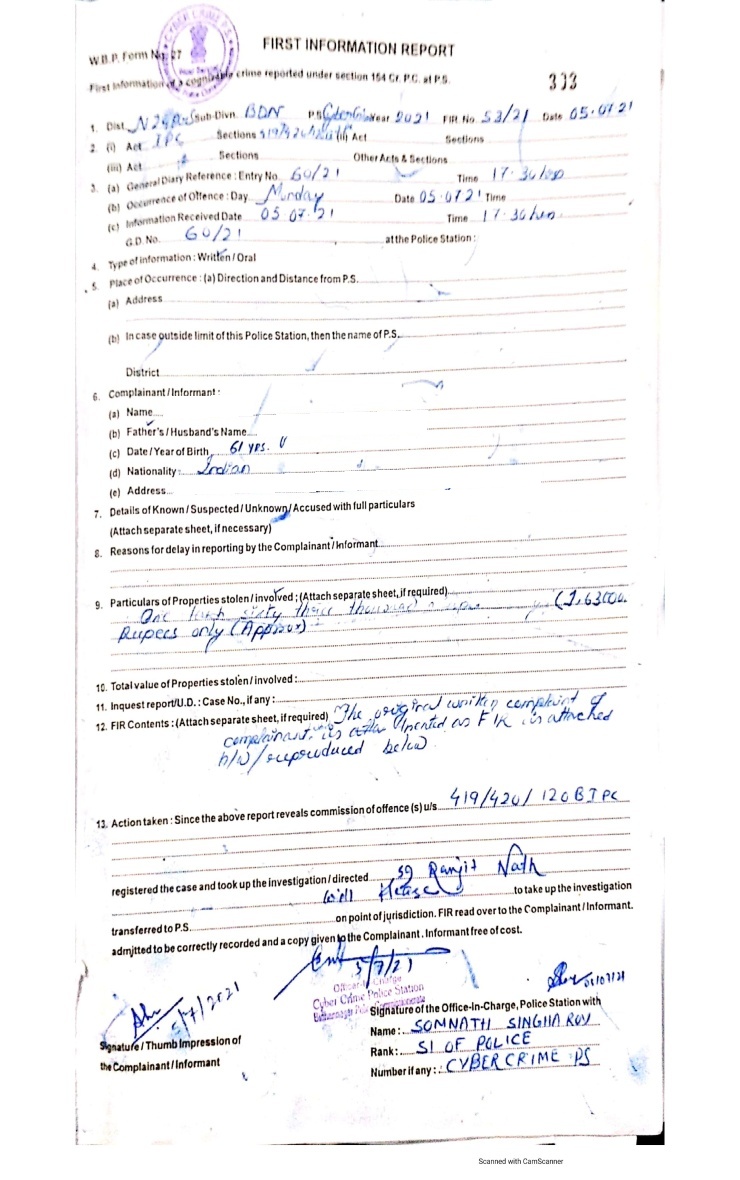 CYBER CRIME P.S.
FIRST INFORMATION REPORT
W.B.P. Form No. 27
First Information of a cognizable crime reported under section 154 Cr. P.C. at P.S.
303
1. Dist. N 24 Pgs Sub-Divn. BDN P.S. Year 2021 FIR No. 53/21 Date 05.07.21
2. (i) Act IPC Sections 419/420/120B (ii) Act Sections
(iii) Act Sections Other Acts & Sections
3. (a) General Diary Reference : Entry No. 60/21 Time 17.30 hrs
(b) Occurrence of Offence : Day Monday Date 05.07.21 Time
(c) Information Received Date 05.07.21 Time 17.30 hrs
G.D. No. 60/21 at the Police Station :
4. Type of information : Written / Oral
5. Place of Occurrence : (a) Direction and Distance from P.S.
(a) Address
(b) In case outside limit of this Police Station, then the name of P.S.
District
6. Complainant / Informant :
(a) Name
(b) Father's / Husband's Name
(c) Date / Year of Birth 61 yrs.
(d) Nationality : Indian
(e) Address
7. Details of Known / Suspected / Unknown / Accused with full particulars
(Attach separate sheet, if necessary)
8. Reasons for delay in reporting by the Complainant / Informant
9. Particulars of Properties stolen / involved ; (Attach separate sheet, if required)
One lakh sixty three thousand (1,63000.
Rupees only (Approx)
10. Total value of Properties stolen / involved :
11. Inquest report / U.D. : Case No., if any :
12. FIR Contents : (Attach separate sheet, if required) The original written complaint of
complainant is treated as FIR is attached
h/w / reproduced below
13. Action taken : Since the above report reveals commission of offence (s) u/s 419/420/120B IPC
registered the case and took up the investigation / directed SI Ranjit Nath
will Please to take up the investigation
transferred to P.S. on point of jurisdiction. FIR read over to the Complainant / Informant.
admitted to be correctly recorded and a copy given to the Complainant. Informant free of cost.
5/7/21
Officer-In-Charge
Cyber Crime Police Station
5/7/2021
Signature / Thumb Impression of
the Complainant / Informant
05/07/21
Signature of the Office-In-Charge, Police Station with
Name : SOMNATH SINGHA ROY
Rank : SI OF POLICE
Number if any : CYBER CRIME PS
Scanned with CamScanner